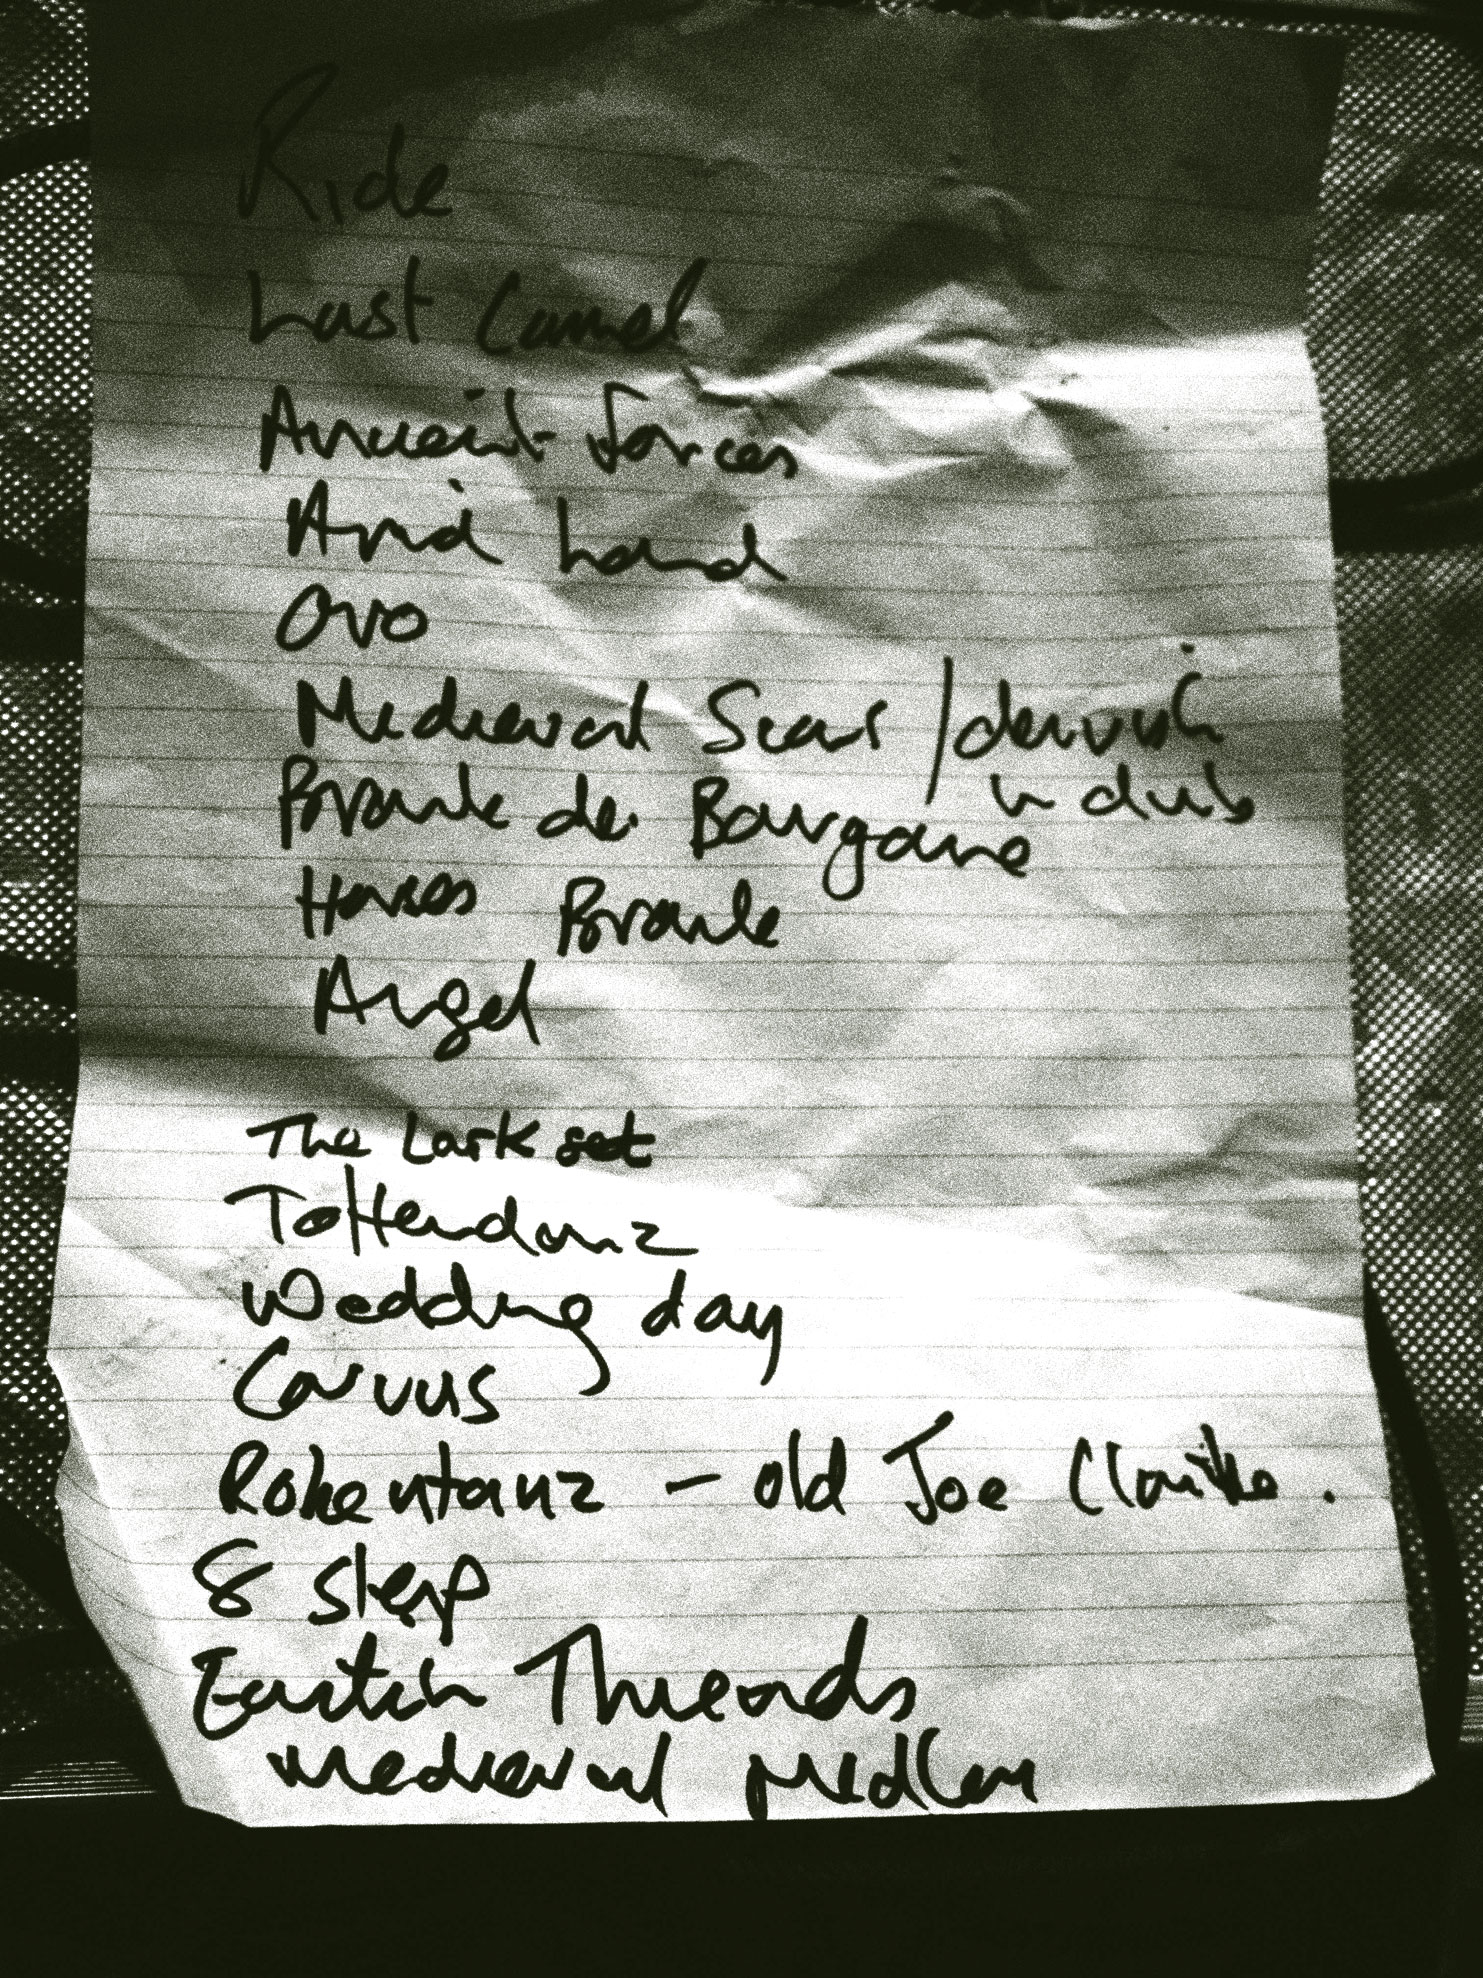 Ride
Last Camel
Ancient forces
Arid land
Ovo
Medieval Scars / dervish
in dub
Branle de Bourgogne
Horses Branle
Angel
The Lark set
Tottendanz
Wedding day
Corvus
Rokentanz - old Joe Clarke.
8 step
Earth Threads
Medieval Medley